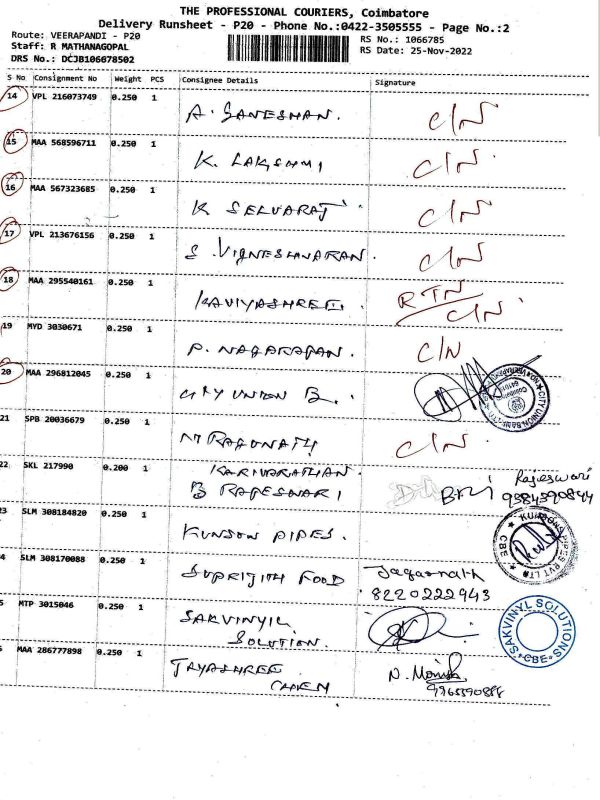 THE PROFESSIONAL COURIERS, Coimbatore
Delivery Runsheet - P20 - Phone No.:0422-3505555 - Page No.:2
Route: VEERAPANDI - P20
RS No.: 1066785
Staff: R MATHANAGOPAL
RS Date: 25-Nov-2022
DRS No.: DCJB106678502
S No Consignment No Weight PCS Consignee Details Signature
14 VPL 216073749 0.250 1 A. GANESHAN. C/N
15 MAA 568596711 0.250 1 K. LAKSHMI C/N.
16 MAA 567323685 0.250 1 K SELVARAJ. C/N
17 VPL 213676156 0.250 1 S. VIGNESHWARAN. C/N
18 MAA 295540161 0.250 1 KAVIYASHREE. RTN
C/N.
19 MYD 3030671 0.250 1 P. NAGARAJAN. C/N
20 MAA 296812045 0.250 1 CITY UNION B.
CITY UNION BANK
21 SPB 20036679 0.250 1 C/N.
22 SKL 217990 0.200 1 KARIVARATHAN
B RAJESWARI
Rajeswari
9384390844
23 SLM 308184820 0.250 1 KUNSON PIPES.
KUNSONS PIPES PVT LTD
CBE
4 SLM 308170088 0.250 1 SUPRIJITH FOOD Jagannath
8220222943
5 MTP 3015046 0.250 1 SAKVINYL
SOLUTION.
SAKVINYL SOLUTIONS
CBE
MAA 286777898 0.250 1 JAYASHREE
CHEM
N. Monish